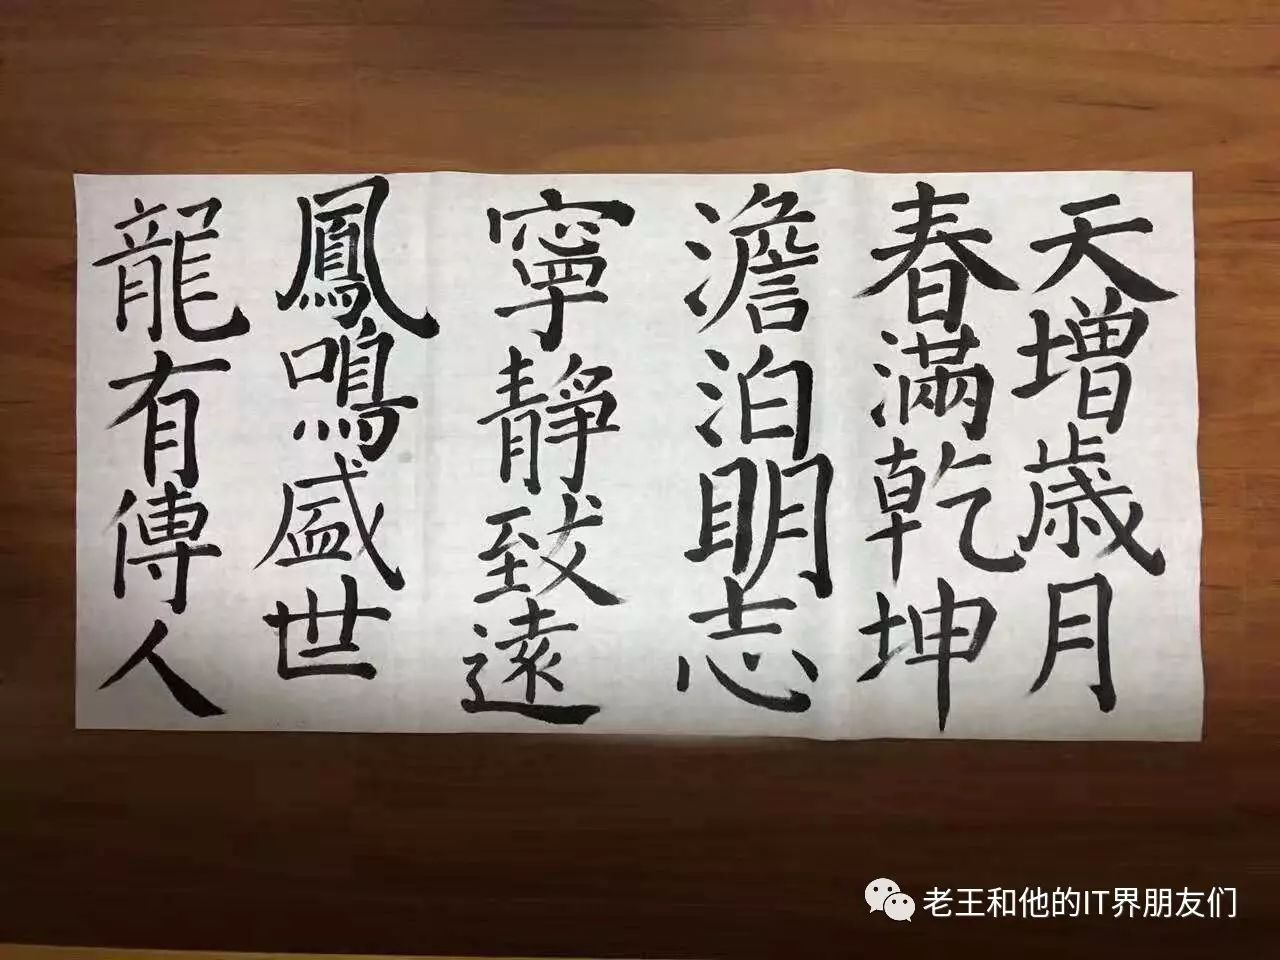 天增歳月
春滿乾坤
澹泊明志
寧靜致遠
鳳鳴盛世
龍有傳人
老王和他的IT界朋友们